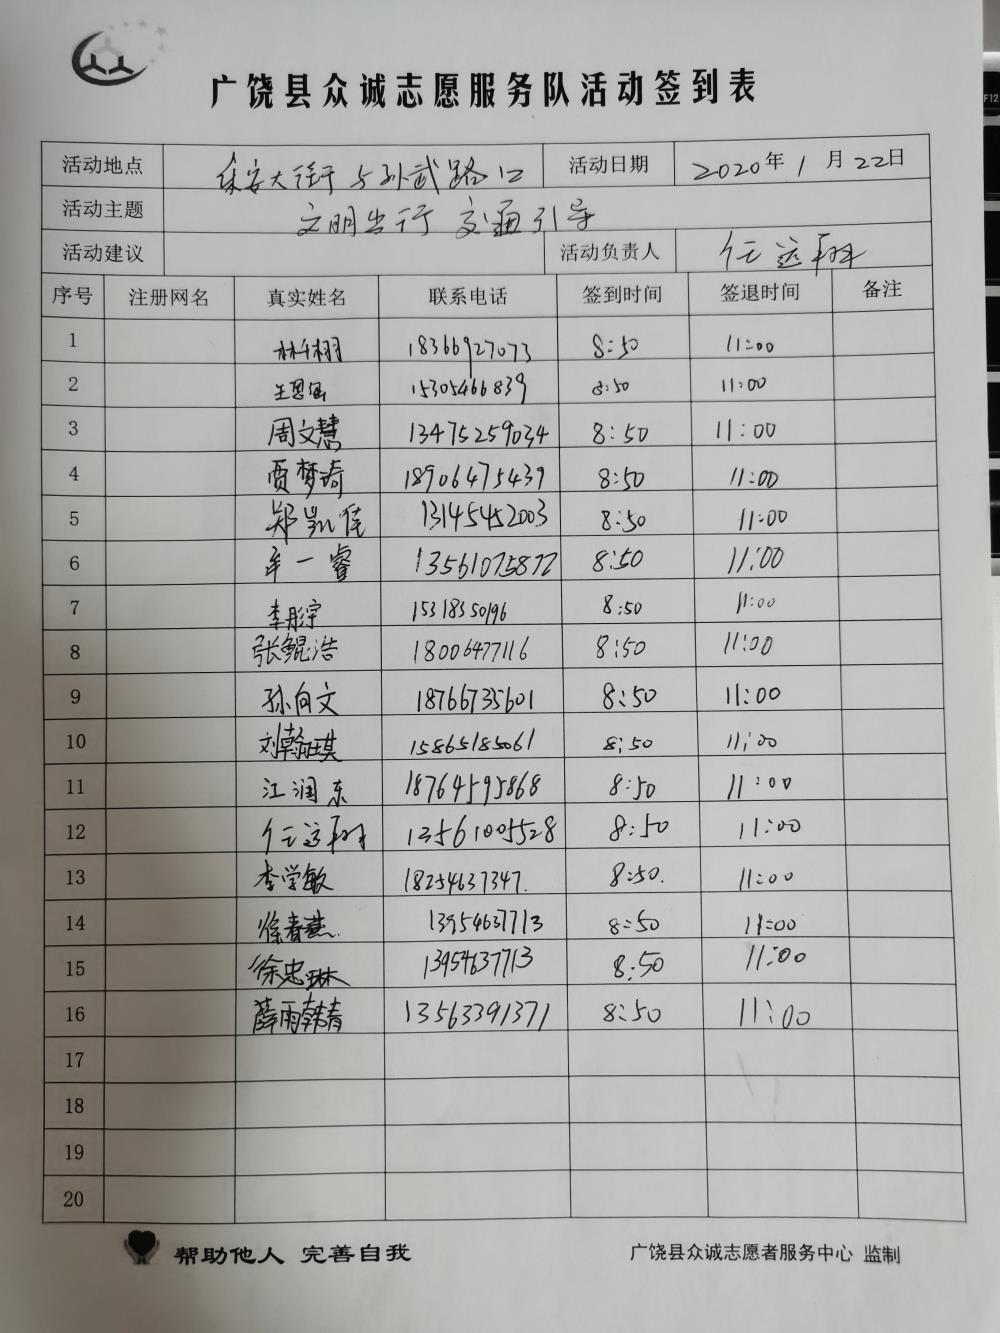 广饶县众诚志愿服务队活动签到表
活动地点 乐安大街与孙武路口 活动日期 2020年1月22日
活动主题 文明出行 交通引导
活动建议 活动负责人 任远翔
序号 注册网名 真实姓名 联系电话 签到时间 签退时间 备注
1 林千栩 18366927073 8:50 11:00
2 王思涵 15305466839 8:50 11:00
3 周文慧 13475259034 8:50 11:00
4 贾梦琦 18906475439 8:50 11:00
5 郑凯佳 13145452003 8:50 11:00
6 牟一睿 13561075872 8:50 11:00
7 李彤宇 15318350196 8:50 11:00
8 张鲲浩 18006477116 8:50 11:00
9 孙向文 18766735601 8:50 11:00
10 刘翰琪 15865185061 8:50 11:00
11 江润东 18764595868 8:50 11:00
12 任远翔 13561005528 8:50 11:00
13 李学敏 18254637347. 8:50. 11:00
14 徐春燕. 13954637713 8:50 11:00
15 徐忠琳 13954637713 8:50 11:00
16 薛雨韩春 13563391371 8:50 11:00
17
18
19
20
帮助他人 完善自我 广饶县众诚志愿者服务中心 监制
F12